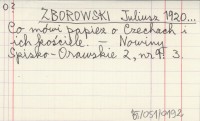 ZBOROWSKI Juliusz 1920...
Co mówi papież o Czechach i
ich kościele. — Nowiny
Spisko-Orawskie 2, nr 9: 3.